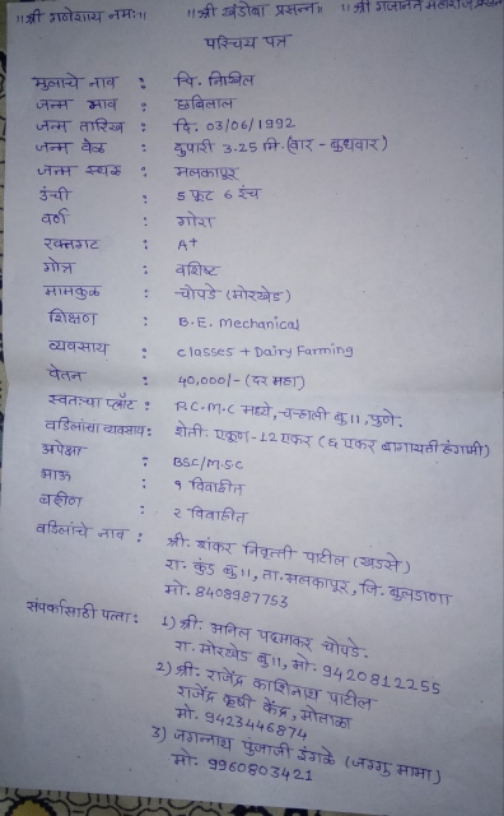 ॥श्री गणेशाय नमः॥ ॥श्री खंडोबा प्रसन्न॥ ॥श्री गजानन महाराज प्रसन्न
परिचय पत्र
मुलाचे नाव : चि. निखिल
जन्म नाव : छबिलाल
जन्म तारिख : दि. 03/06/1992
जन्म वेळ : दुपारी 3.25 मि. (वार - बुधवार)
जन्म स्थळ : मलकापूर
उंची : 5 फूट 6 इंच
वर्ण : गोरा
रक्तगट : A+
गोत्र : वशिष्ट
मामकुळ : चोपडे (मोरखेड)
शिक्षण : B.E. Mechanical
व्यवसाय : classes + Dairy Farming
वेतन : 40,000/- (दर महा)
स्वतःचा प्लॉट : P.C.M.C मध्ये, चऱ्होली बु॥, पुणे.
वडिलांचा व्यवसाय : शेती: एकूण - 12 एकर (6 एकर बागायती हंगामी)
अपेक्षा : BSC/M.S.C
भाऊ : १ विवाहीत
बहीण : २ विवाहीत
वडिलांचे नाव : श्री. शंकर निवृत्ती पाटील (खडसे)
रा. कुंड बु॥, ता. मलकापूर, जि. बुलडाणा
मो. 8408987753
संपर्कासाठी पत्ता : 1) श्री. अनिल पद्माकर चोपडे.
रा. मोरखेड बु॥, मो. 9420812255
2) श्री. राजेंद्र काशिनाथ पाटील
राजेंद्र कृषी केंद्र, मोताळा
मो. 9423446874
3) जगन्नाथ पुंजाजी इंगळे (जग्गु मामा)
मो. 9960803421